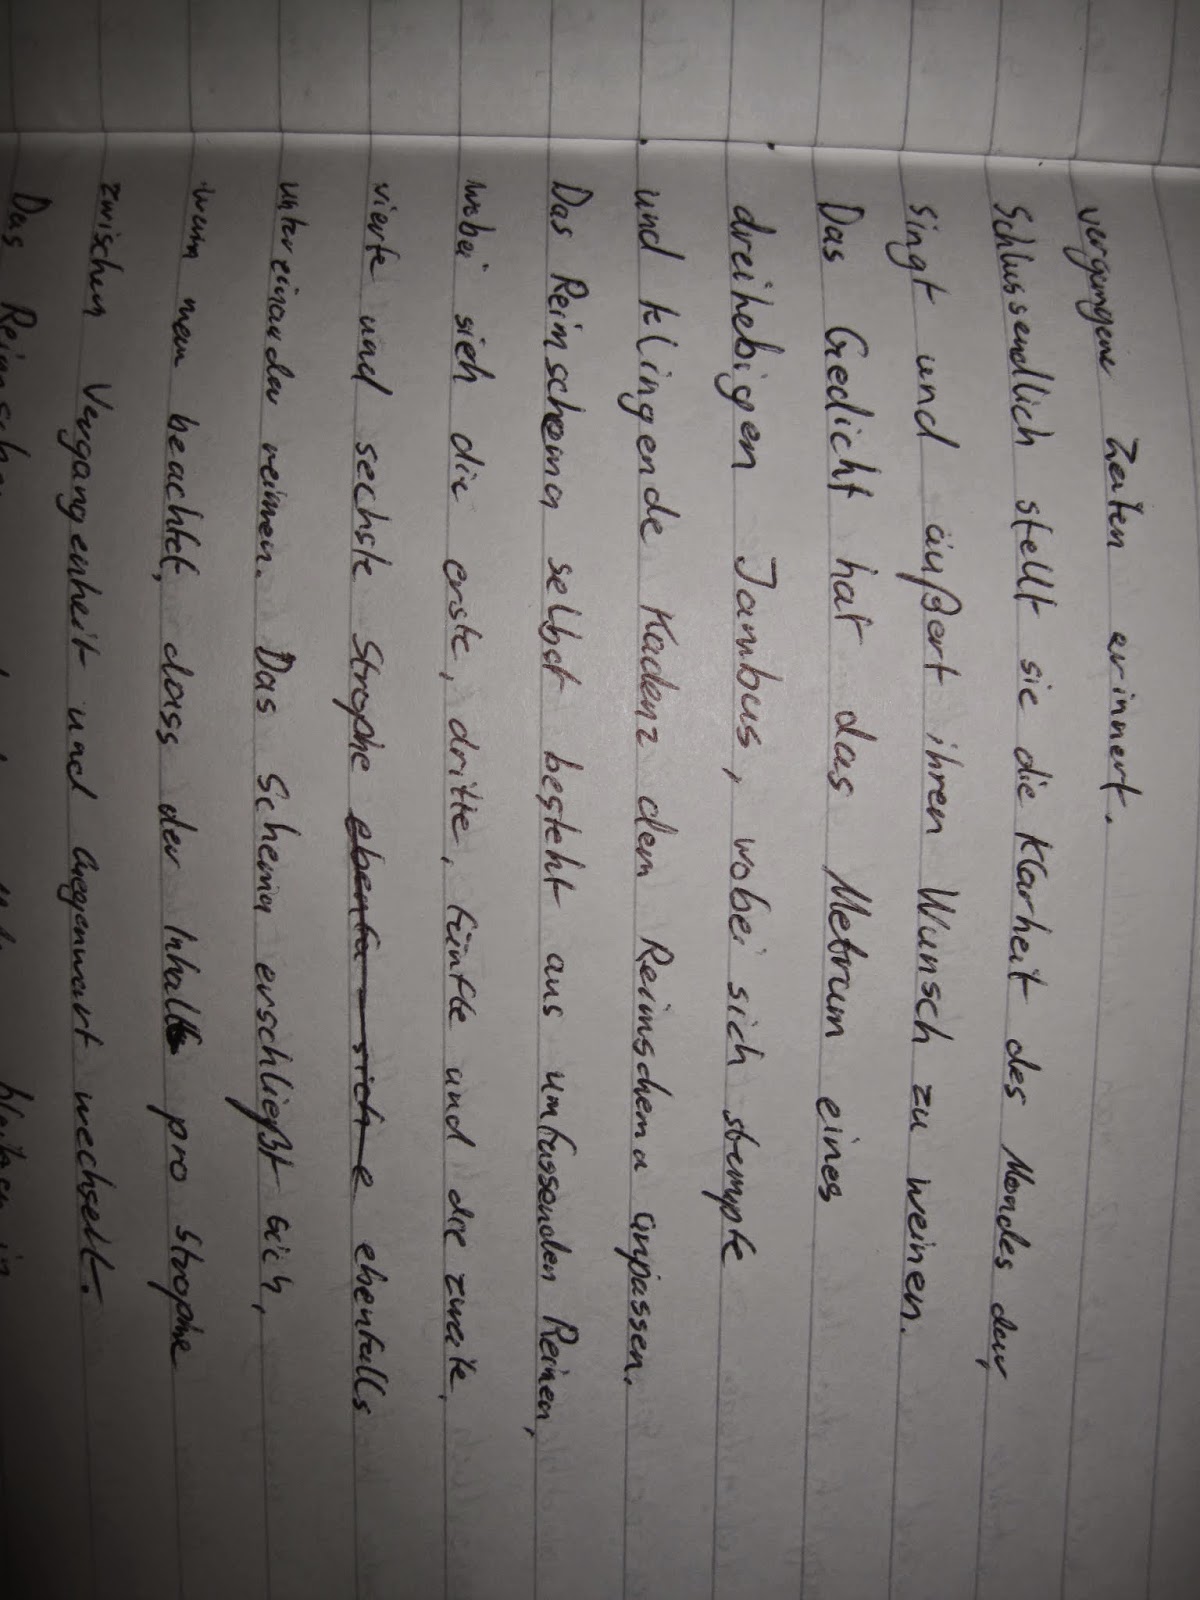 vergangene Zeiten erinnert.
Schlussendlich stellt sie die Klarheit des Mondes dar,
singt und äußert ihren Wunsch zu weinen.
Das Gedicht hat das Metrum eines
dreihebigen Jambus, wobei sich stumpfe
und klingende Kadenz dem Reimschema anpassen.
Das Reimschema selbst besteht aus umfassenden Reimen,
wobei sich die erste, dritte, fünfte und die zweite,
vierte und sechste Strophe ebenfalls
untereinander reimen. Das Schema erschließt sich,
wenn man beachtet, dass der Inhalt pro Strophe
zwischen Vergangenheit und Gegenwart wechselt.
Das